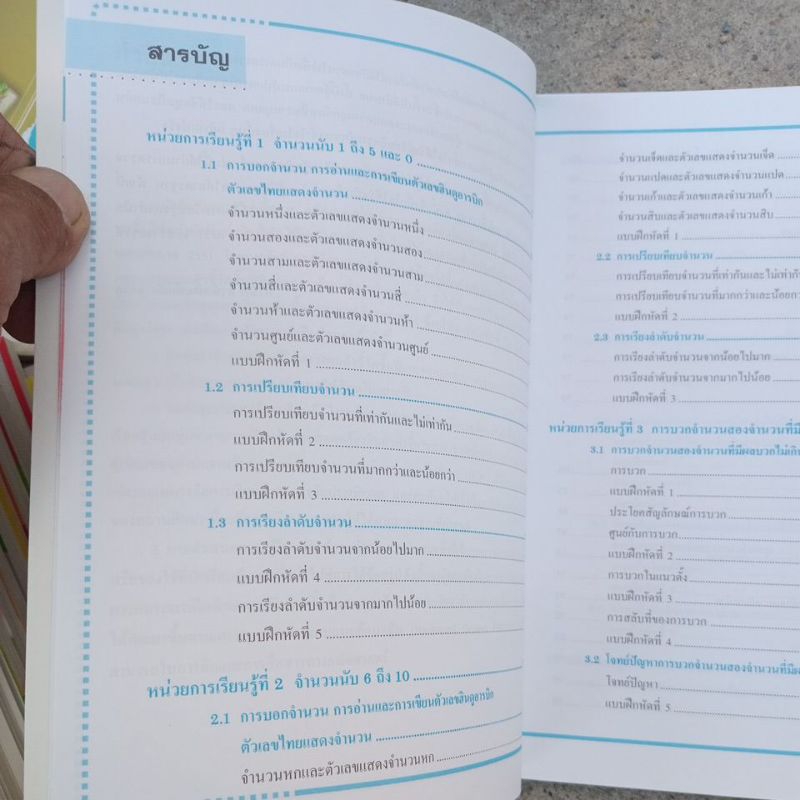 สารบัญ
หน่วยการเรียนรู้ที่ 1 จำนวนนับ 1 ถึง 5 และ 0
1.1 การบอกจำนวน การอ่านและการเขียนตัวเลขฮินดูอารบิก
ตัวเลขไทยแสดงจำนวน
จำนวนหนึ่งและตัวเลขแสดงจำนวนหนึ่ง
จำนวนสองและตัวเลขแสดงจำนวนสอง
จำนวนสามและตัวเลขแสดงจำนวนสาม
จำนวนสี่และตัวเลขแสดงจำนวนสี่
จำนวนห้าและตัวเลขแสดงจำนวนห้า
จำนวนศูนย์และตัวเลขแสดงจำนวนศูนย์
แบบฝึกหัดที่ 1
1.2 การเปรียบเทียบจำนวน
การเปรียบเทียบจำนวนที่เท่ากันและไม่เท่ากัน
แบบฝึกหัดที่ 2
การเปรียบเทียบจำนวนที่มากกว่าและน้อยกว่า
แบบฝึกหัดที่ 3
1.3 การเรียงลำดับจำนวน
การเรียงลำดับจำนวนจากน้อยไปมาก
แบบฝึกหัดที่ 4
การเรียงลำดับจำนวนจากมากไปน้อย
แบบฝึกหัดที่ 5
หน่วยการเรียนรู้ที่ 2 จำนวนนับ 6 ถึง 10
2.1 การบอกจำนวน การอ่านและการเขียนตัวเลขฮินดูอารบิก
ตัวเลขไทยแสดงจำนวน
จำนวนหกและตัวเลขแสดงจำนวนหก
จำนวนเจ็ดและตัวเลขแสดงจำนวนเจ็ด
จำนวนแปดและตัวเลขแสดงจำนวนแปด
จำนวนเก้าและตัวเลขแสดงจำนวนเก้า
จำนวนสิบและตัวเลขแสดงจำนวนสิบ
แบบฝึกหัดที่ 1
2.2 การเปรียบเทียบจำนวน
การเปรียบเทียบจำนวนที่เท่ากันและไม่เท่ากัน
การเปรียบเทียบจำนวนที่มากกว่าและน้อยกว่า
แบบฝึกหัดที่ 2
2.3 การเรียงลำดับจำนวน
การเรียงลำดับจำนวนจากน้อยไปมาก
การเรียงลำดับจำนวนจากมากไปน้อย
แบบฝึกหัดที่ 3
หน่วยการเรียนรู้ที่ 3 การบวกจำนวนสองจำนวนที่มี
3.1 การบวกจำนวนสองจำนวนที่มีผลบวกไม่เกิน
การบวก
แบบฝึกหัดที่ 1
ประโยคสัญลักษณ์การบวก
ศูนย์กับการบวก
แบบฝึกหัดที่ 2
การบวกในแนวตั้ง
แบบฝึกหัดที่ 3
การสลับที่ของการบวก
แบบฝึกหัดที่ 4
3.2 โจทย์ปัญหาการบวกจำนวนสองจำนวนที่มีผ
โจทย์ปัญหา
แบบฝึกหัดที่ 5